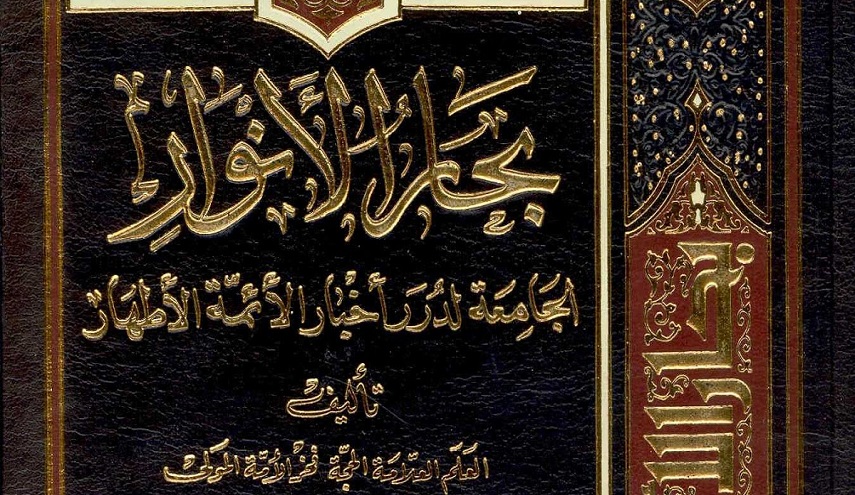 بحار الأنوار
الجامعة لدرر أخبار الأئمة الأطهار
تأليف
العلم العلامة الحجة فخر الأمة المولى
بحار الأ